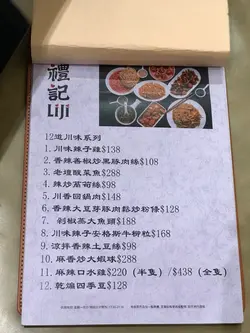 禮記
LIJI
12道川味系列
1. 川味辣子雞$138
2. 香辣善椒炒黑豚肉絲$108
3. 老壇酸菜魚$288
4. 辣炒萵筍絲$98
5. 川香回鍋肉$148
6. 香辣大豆芽豚肉鬆炒粉條$128
7. 剁椒蒸大魚頭$188
8. 川味辣子安格斯牛柳粒$168
9. 涼拌香辣土豆絲$98
10. 麻香炒大蜆球$288
11. 麻辣口水雞$220（半隻）/$438（全隻）
12. 乾煸四季豆$128